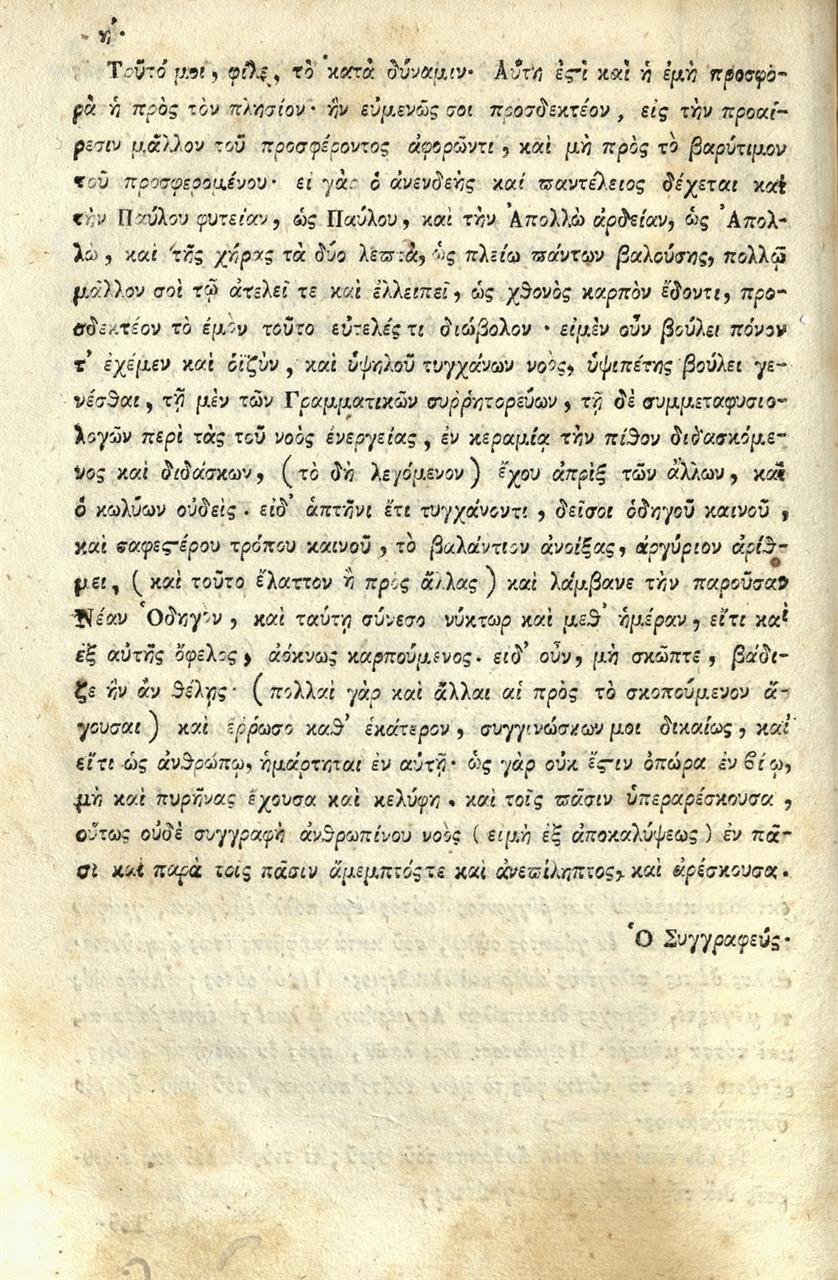 η'.
Τοῦτό μοι, φίλε, τὸ κατὰ δύναμιν· Αὕτη ἐϛὶ καὶ ἡ ἐμὴ προσφο-
ρὰ ἡ πρὸς τὸν πλησίον· ἣν εὐμενῶς σοι προσδεκτέον, εἰς τὴν προαί-
ρεσιν μᾶλλον τοῦ προσφέροντος ἀφορῶντι, καὶ μὴ πρὸς τὸ βαρύτιμον
τοῦ προσφερομένου· εἰ γὰρ ὁ ἀνενδεὴς καί παντέλειος δέχεται καὶ
τὴν Παύλου φυτείαν, ὡς Παύλου, καὶ τὴν Ἀπολλὼ ἀρδείαν, ὡς Ἀπολ-
λὼ, καὶ τῆς χήρας τὰ δύο λεπτὰ, ὡς πλείω πάντων βαλούσης, πολλῷ
μᾶλλον σοὶ τῷ ἀτελεῖ τε καὶ ἐλλειπεῖ, ὡς χθονὸς καρπὸν ἔδοντι, προ-
σδεκτέον τὸ ἐμὸν τοῦτο εὐτελές τι διώβολον · εἰμὲν οὖν βούλει πόνον
τ' ἐχέμεν καὶ ὀϊζὺν, καὶ ὑψηλοῦ τυγχάνων νοὸς, ὑψιπέτης βούλει γε-
νέσθαι, τῇ μὲν τῶν Γραμματικῶν συῤῥητορεύων, τῇ δὲ συμμεταφυσιο-
λογῶν περὶ τὰς τοῦ νοὸς ἐνεργείας, ἐν κεραμίᾳ τὴν πίθον διδασκόμε-
νος καὶ διδάσκων, (τὸ δὴ λεγόμενον) ἔχου ἀπρὶξ τῶν ἄλλων, καὶ
ὁ κωλύων οὐδεὶς. εἰδ' ἀπτῆνι ἔτι τυγχάνοντι, δεῖσοι ὁδηγοῦ καινοῦ,
καὶ σαφεϛέρου τρόπου καινοῦ, τὸ βαλάντιον ἀνοίξας, ἀργύριον ἀρίθ-
μει, (καὶ τοῦτο ἔλαττον ἢ πρὸς ἄλλας) καὶ λάμβανε τὴν παροῦσαν
Νέαν Ὁδηγὸν, καὶ ταύτῃ σύνεσο νύκτωρ καὶ μεθ' ἡμέραν, εἴτι καὶ
ἐξ αὐτῆς ὄφελος, ἀόκνως καρπούμενος. εἰδ' οὖν, μὴ σκῶπτε, βάδι-
ζε ἣν ἂν θέλῃς· (πολλαὶ γὰρ καὶ ἄλλαι αἱ πρὸς τὸ σκοπούμενον ἄ-
γουσαι) καὶ ἔῤῥωσο καθ' ἑκάτερον, συγγινώσκων μοι δικαίως, καὶ
εἴτι ὡς ἀνθρώπῳ, ἡμάρτηται ἐν αὐτῇ· ὡς γὰρ οὐκ ἔϛιν ὀπώρα ἐν βίῳ,
μὴ καὶ πυρῆνας ἔχουσα καὶ κελύφη. καὶ τοῖς πᾶσιν ὑπεραρέσκουσα,
οὕτως οὐδὲ συγγραφὴ ἀνθρωπίνου νοὸς (εἰμὴ ἐξ ἀποκαλύψεως) ἐν πᾶ-
σι καὶ παρὰ τοῖς πᾶσιν ἄμεμπτός τε καὶ ἀνεπίληπτος, καὶ ἀρέσκουσα.
Ὁ Συγγραφεύς.